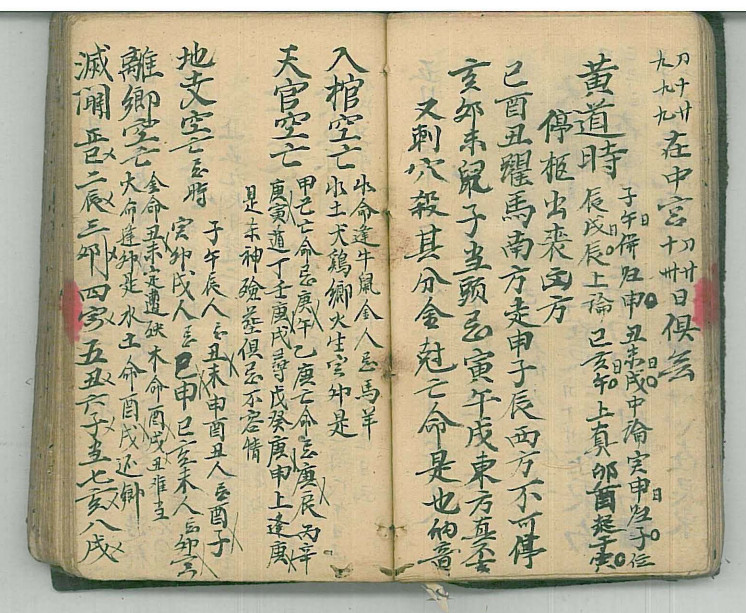 九九九 初十廿 在中宮 初十廿卅日俱忌
黄道時 子午日併归申 丑未日戌中論 寅申归子位
辰戌日辰上論 巳亥日午上真 卯酉日起于寅
停柩出丧凶方
巳酉丑躍馬南方走申子辰西方不可停
亥卯未鼠子当頭忌寅午戌東方真不去
又刺穴殺其分金尅亡命是也納音
入棺空亡 水命逢牛鼠金人忌馬羊
水土犬鶏鄉火生寅卯是
天官空亡 甲己亡命忌庚午乙庚亡命忌庚辰丙辛
庚寅道丁壬庚戌尋戊癸庚申上逢寓
是未神殮葬俱忌不容情
地支空亡 忌時 子午辰人忌丑未申酉丑人忌酉子
寅卯戌人忌巳申巳亥未人忌卯寅
離鄉空亡 金命丑未定遭殃木命酉戌丑难当
火命逢卯是水土命酉戌还鄉
滅門 正巳二辰三卯四寅五丑六子至七亥八戌